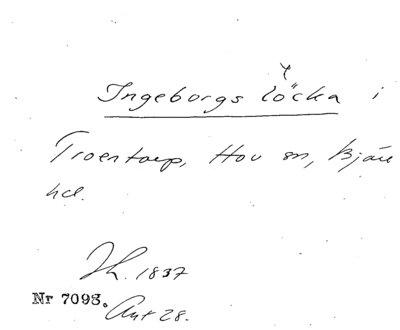 Ingeborgs löcka i
Troentorp, Hov sn, Bjäre
hd.
Jh. 1837
Nr 7098.
Ant 28.